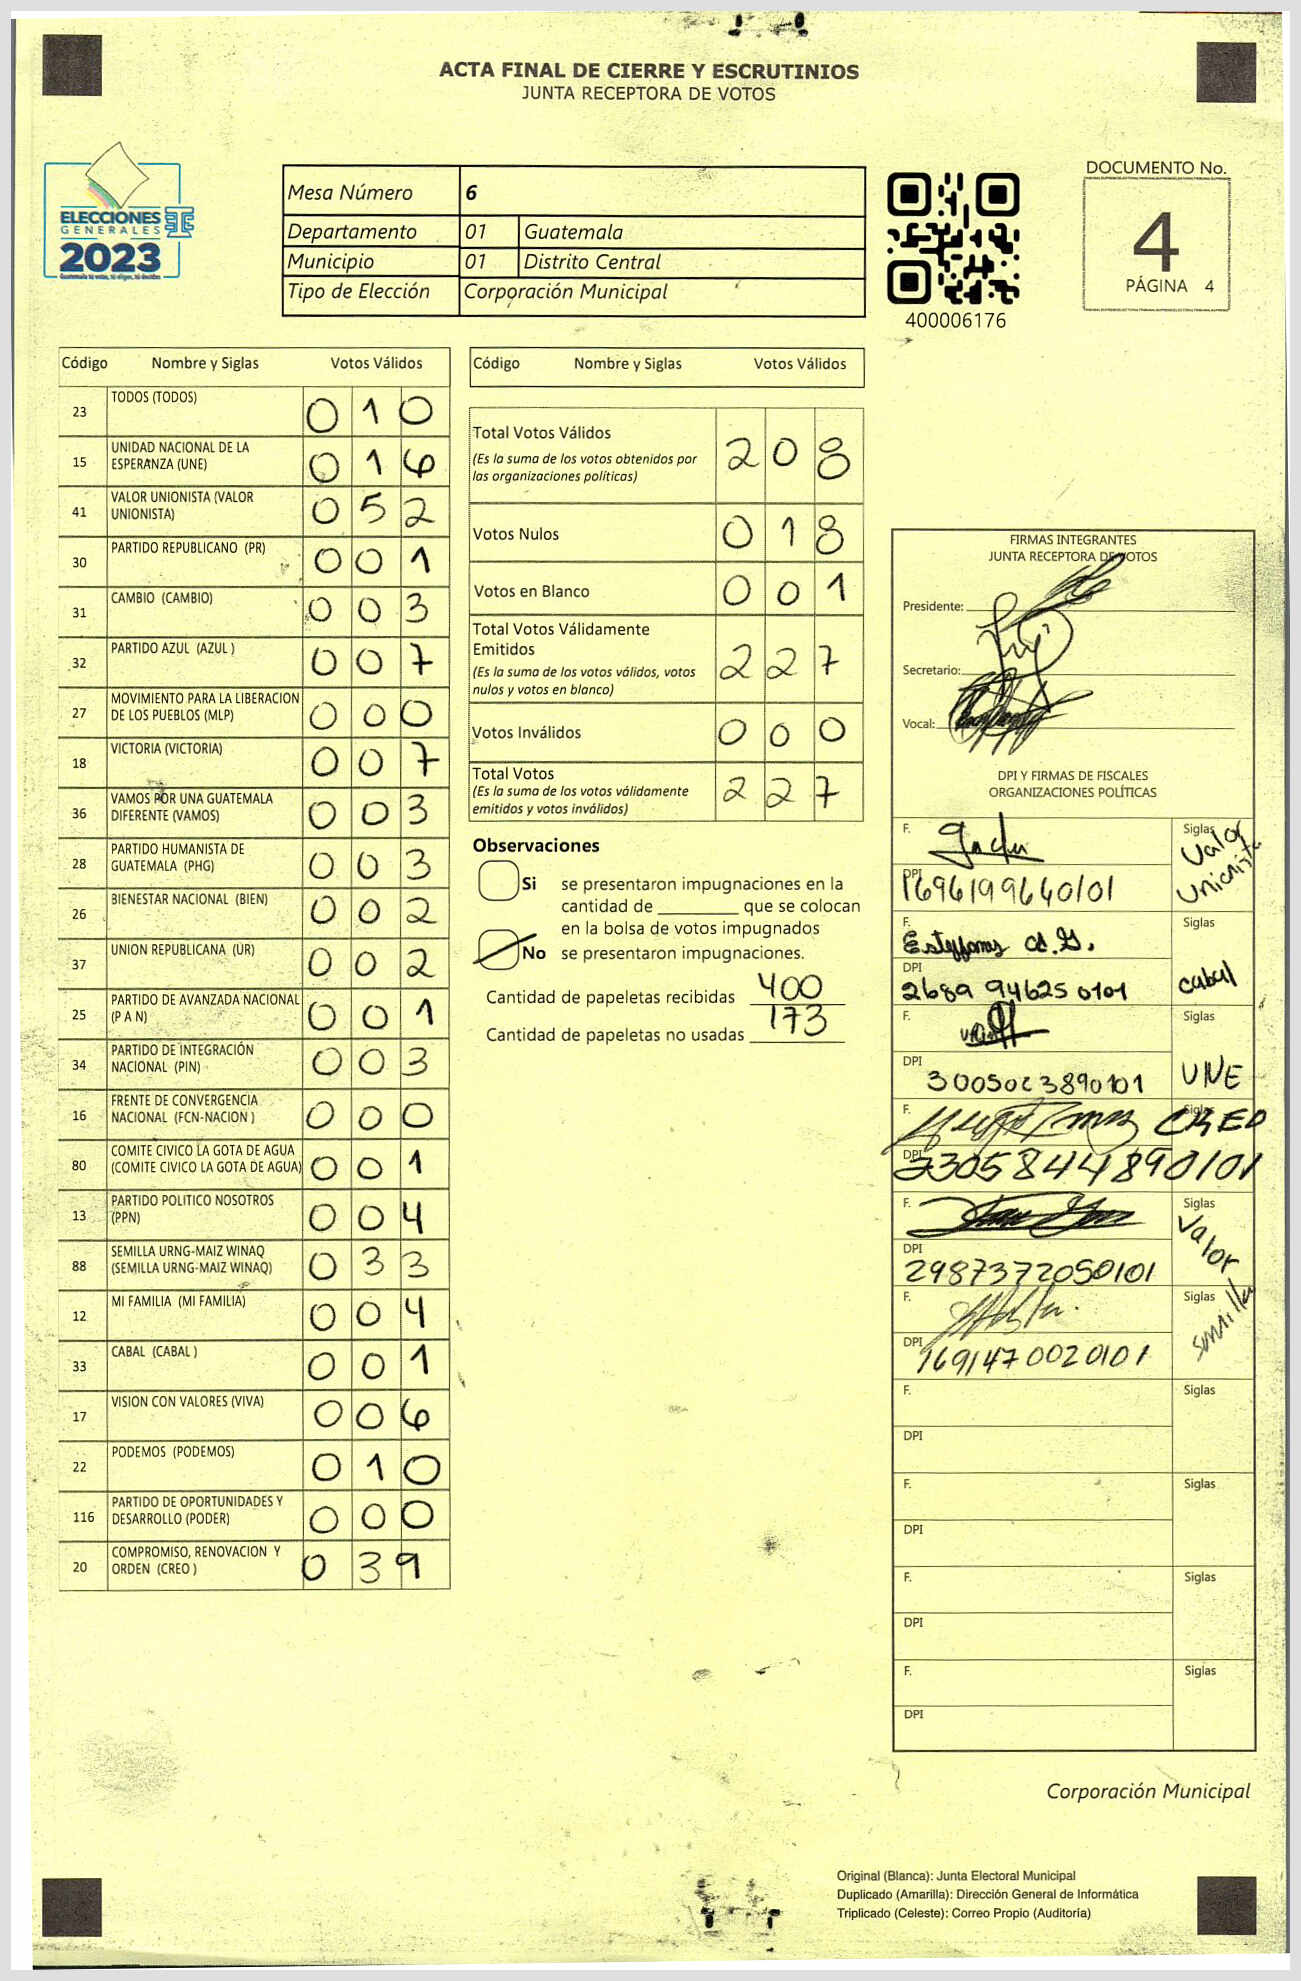 ACTA FINAL DE CIERRE Y ESCRUTINIOS
JUNTA RECEPTORA DE VOTOS
ELECCIONES
GENERALES
2023
Mesa Número 6
Departamento 01 Guatemala
Municipio 01 Distrito Central
Tipo de Elección Corporación Municipal
400006176
DOCUMENTO No.
4
PÁGINA 4
Código Nombre y Siglas Votos Válidos
23 TODOS (TODOS) 0 1 0
15 UNIDAD NACIONAL DE LA
ESPERANZA (UNE) 0 1 6
41 VALOR UNIONISTA (VALOR
UNIONISTA) 0 5 2
30 PARTIDO REPUBLICANO (PR) 0 0 1
31 CAMBIO (CAMBIO) 0 0 3
32 PARTIDO AZUL (AZUL ) 0 0 7
27 MOVIMIENTO PARA LA LIBERACION
DE LOS PUEBLOS (MLP) 0 0 0
18 VICTORIA (VICTORIA) 0 0 7
36 VAMOS POR UNA GUATEMALA
DIFERENTE (VAMOS) 0 0 3
28 PARTIDO HUMANISTA DE
GUATEMALA (PHG) 0 0 3
26 BIENESTAR NACIONAL (BIEN) 0 0 2
37 UNION REPUBLICANA (UR) 0 0 2
25 PARTIDO DE AVANZADA NACIONAL
(P A N) 0 0 1
34 PARTIDO DE INTEGRACIÓN
NACIONAL (PIN) 0 0 3
16 FRENTE DE CONVERGENCIA
NACIONAL (FCN-NACION ) 0 0 0
80 COMITE CIVICO LA GOTA DE AGUA
(COMITE CIVICO LA GOTA DE AGUA) 0 0 1
13 PARTIDO POLITICO NOSOTROS
(PPN) 0 0 4
88 SEMILLA URNG-MAIZ WINAQ
(SEMILLA URNG-MAIZ WINAQ) 0 3 3
12 MI FAMILIA (MI FAMILIA) 0 0 4
33 CABAL (CABAL ) 0 0 1
17 VISION CON VALORES (VIVA) 0 0 6
22 PODEMOS (PODEMOS) 0 1 0
116 PARTIDO DE OPORTUNIDADES Y
DESARROLLO (PODER) 0 0 0
20 COMPROMISO, RENOVACION Y
ORDEN (CREO ) 0 3 9
Código Nombre y Siglas Votos Válidos
Total Votos Válidos 2 0 8
(Es la suma de los votos obtenidos por
las organizaciones políticas)
Votos Nulos 0 1 8
Votos en Blanco 0 0 1
Total Votos Válidamente
Emitidos 2 2 7
(Es la suma de los votos válidos, votos
nulos y votos en blanco)
Votos Inválidos 0 0 0
Total Votos 2 2 7
(Es la suma de los votos válidamente
emitidos y votos inválidos)
Observaciones
Si se presentaron impugnaciones en la
cantidad de ________ que se colocan
en la bolsa de votos impugnados
No se presentaron impugnaciones.
Cantidad de papeletas recibidas 400
Cantidad de papeletas no usadas 173
FIRMAS INTEGRANTES
JUNTA RECEPTORA DE VOTOS
Presidente:
Secretario:
Vocal:
DPI Y FIRMAS DE FISCALES
ORGANIZACIONES POLÍTICAS
F. Siglas Valor
Unionista
DPI 1696199640101
F. Siglas cabal
DPI 2689 94625 0101
F. Siglas UNE
DPI 3005023890101
F. Siglas CREO
DPI 2305844890101
F. Siglas Valor
DPI 2987372050101
F. Siglas semilla
DPI 1691470020101
F. Siglas
DPI
F. Siglas
DPI
F. Siglas
DPI
F. Siglas
DPI
Corporación Municipal
Original (Blanca): Junta Electoral Municipal
Duplicado (Amarilla): Dirección General de Informática
Triplicado (Celeste): Correo Propio (Auditoría)